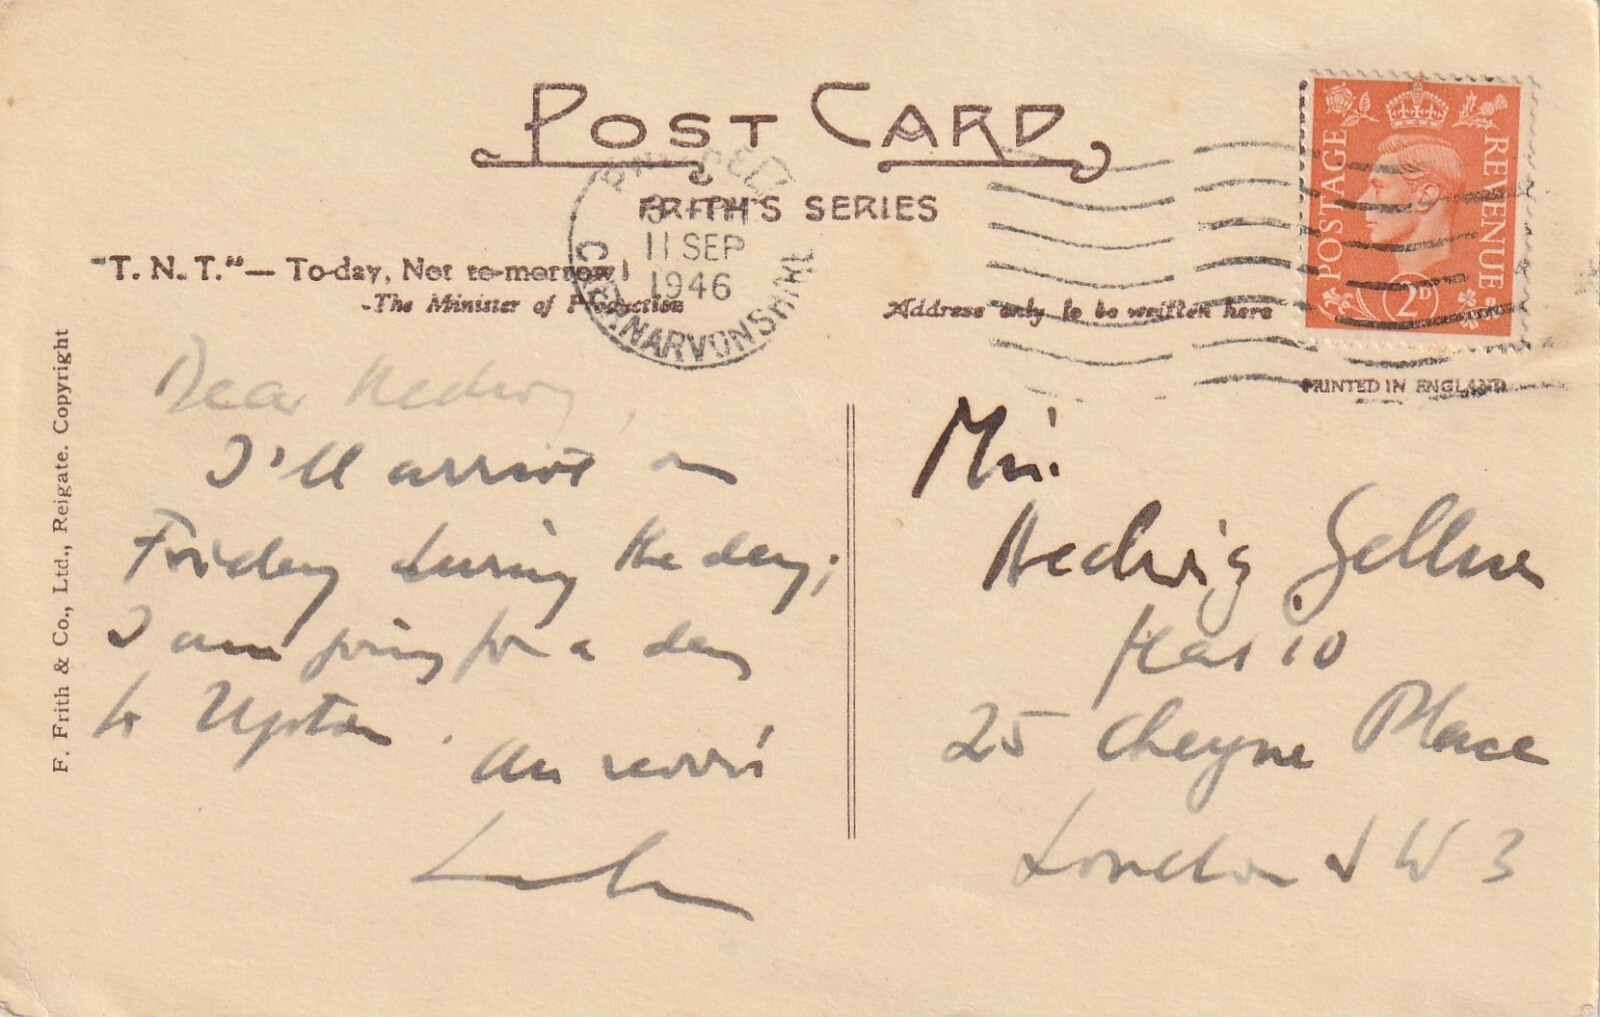 POST CARD
FRITH'S SERIES
11 SEP
1946
CAERNARVONSHIRE
POSTAGE
REVENUE
2D
"T. N. T."— To-day, Not to-morrow!
-The Minister of Production
Address only to be written here
PRINTED IN ENGLAND
F. Frith & Co., Ltd., Reigate. Copyright
Dear Hedwig,
I'll arrive on
Friday during the day;
I am going for a day
to Upton.
Au revoir
Miss
Hedwig
Flat 10
25 Cheyne Place
London S W 3